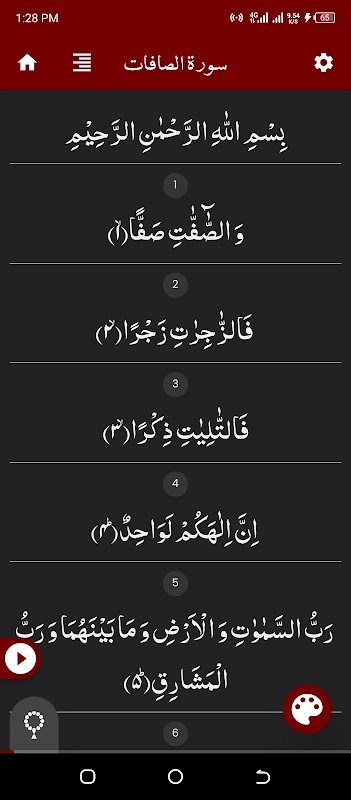 1:28 PM 4G 9.54 K/S 65
سورة الصافات
بِسْمِ اللّٰهِ الرَّحْمٰنِ الرَّحِيْمِ
1
وَالصّٰٓفّٰتِ صَفًّاۙ(۱)
2
فَالزّٰجِرٰتِ زَجْرًاۙ(۲)
3
فَالتّٰلِيٰتِ ذِكْرًاۙ(۳)
4
اِنَّ اِلٰهَكُمْ لَوَاحِدٌؕ(۴)
5
رَبُّ السَّمٰوٰتِ وَالْاَرْضِ وَمَا بَيْنَهُمَا وَرَبُّ
الْمَشَارِقِؕ(۵)
6